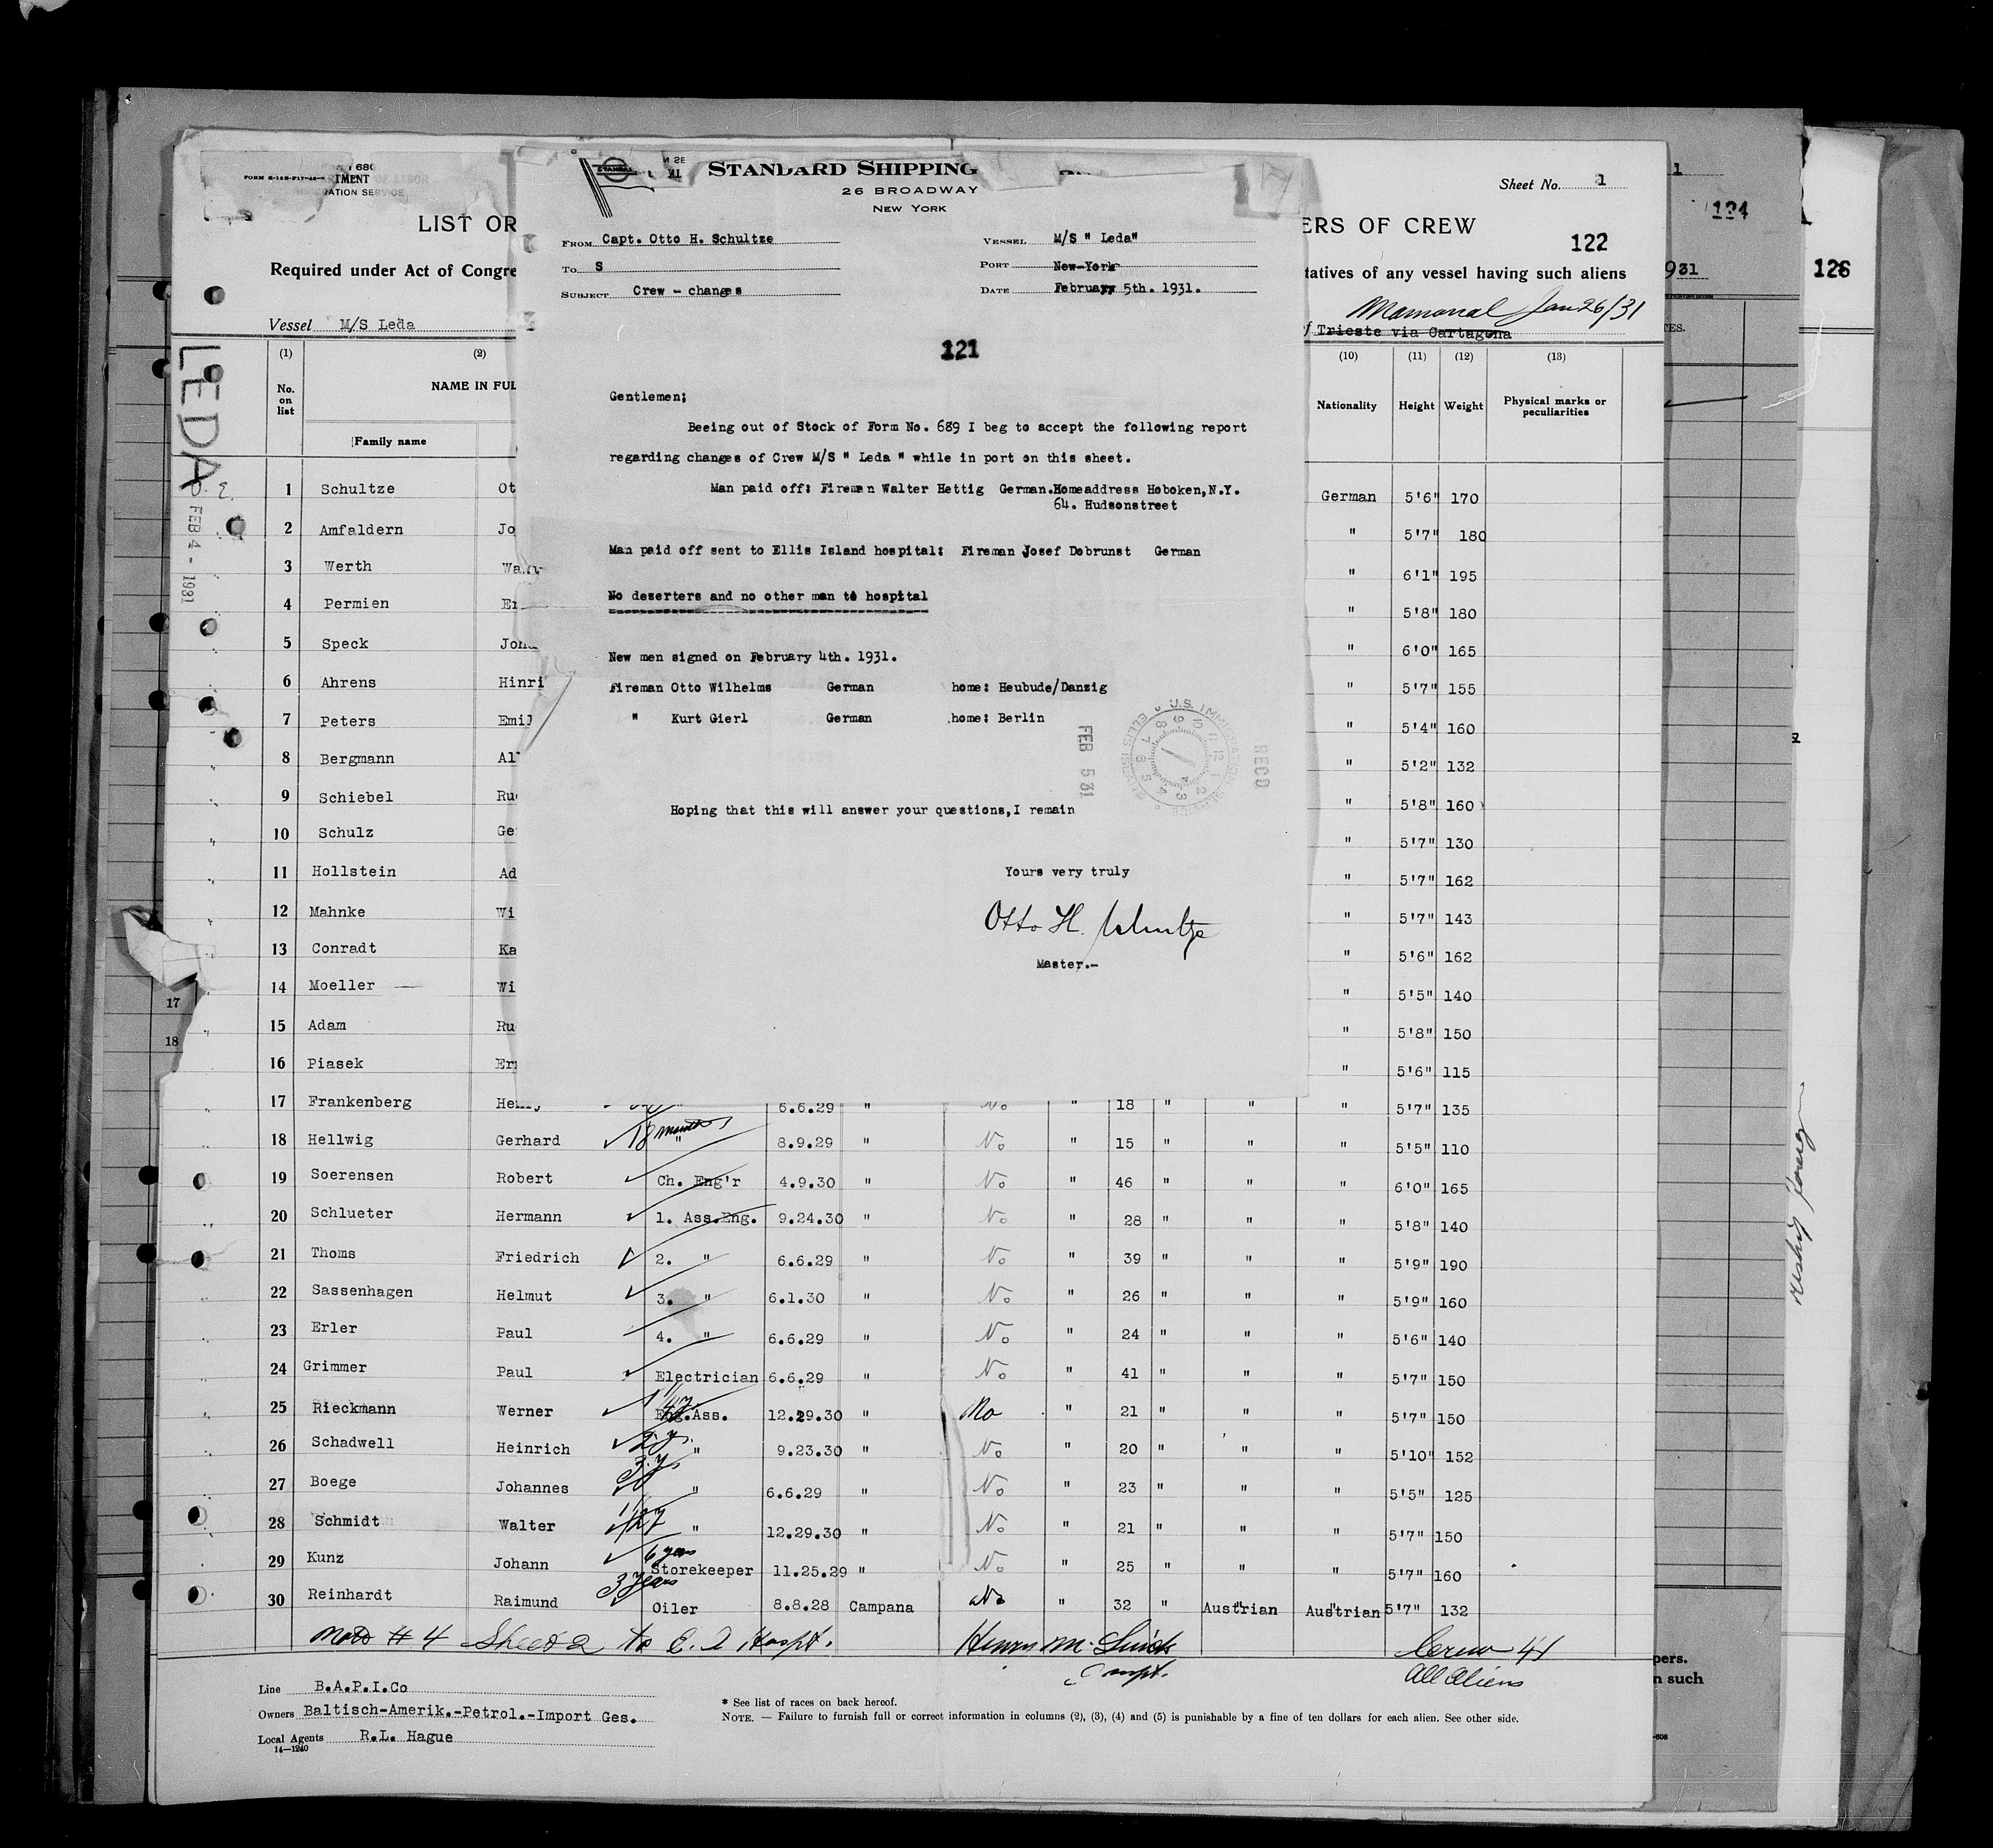 STANDARD SHIPPING
26 BROADWAY
NEW YORK
FROM Capt. Otto H. Schultze
TO S
SUBJECT Crew - changes
VESSEL M/S " Leda"
PORT New-York
DATE February 5th. 1931.
121
Gentlemen;
Beeing out of Stock of Form No. 689 I beg to accept the following report
regarding changes of Crew M/S " Leda " while in port on this sheet.
Man paid off: Fireman Walter Hettig German.Homeaddress Hoboken,N.Y.
64. Hudsonstreet
Man paid off sent to Ellis Island hospital: Fireman Josef Dobrunst German
No deserters and no other man to hospital
New men signed on February 4th. 1931.
Fireman Otto Wilhelms German home: Heubude/Danzig
" Kurt Gierl German home: Berlin
RECD
FEB 5 31
U.S. IMMIGRATION SERVICE
ELLIS ISLAND
Hoping that this will answer your questions,I remain
Yours very truly
Otto H. Schultze
Master.-
680
TMENT
RATION SERVICE
Sheet No. 1
LIST OR
ERS OF CREW
122
Required under Act of Congre
tatives of any vessel having such aliens
Vessel M/S Leda
Mamonal Jan 26/31
of Trieste via Cartagena
LEDA
FEB 4 - 1931
(1) (2) (10) (11) (12) (13)
No. on list NAME IN FUL Nationality Height Weight Physical marks or peculiarities
Family name
1 Schultze Ot German 5'6" 170
2 Amfaldern Jo " 5'7" 180
3 Werth Wa " 6'1" 195
4 Permien Er " 5'8" 180
5 Speck Joh " 6'0" 165
6 Ahrens Hinri " 5'7" 155
7 Peters Emil " 5'4" 160
8 Bergmann Al " 5'2" 132
9 Schiebel Ru " 5'8" 160
10 Schulz Ge " 5'7" 130
11 Hollstein Ad " 5'7" 162
12 Mahnke Wi " 5'7" 143
13 Conradt Ka " 5'6" 162
14 Moeller Wi " 5'5" 140
15 Adam Ru " 5'8" 150
16 Piasek Er " 5'6" 115
17 Frankenberg Henry 6.6.29 " No " 18 " " " 5'7" 135
18 Hellwig Gerhard 18 months " 8.9.29 " No " 15 " " " 5'5" 110
19 Soerensen Robert Ch. Eng'r 4.9.30 " No " 46 " " " 6'0" 165
20 Schlueter Hermann 1. Ass.Eng. 9.24.30 " No " 28 " " " 5'8" 140
21 Thoms Friedrich 2. " 6.6.29 " No " 39 " " " 5'9" 190
22 Sassenhagen Helmut 3. " 6.1.30 " No " 26 " " " 5'9" 160
23 Erler Paul 4. " 6.6.29 " No " 24 " " " 5'6" 140
24 Grimmer Paul Electrician 6.6.29 " No " 41 " " " 5'7" 150
25 Rieckmann Werner Eng.Ass. 12.29.30 " No " 21 " " " 5'7" 150
26 Schadwell Heinrich 2 y. " 9.23.30 " No " 20 " " " 5'10" 152
27 Boege Johannes 3 y. " 6.6.29 " No " 23 " " " 5'5" 125
28 Schmidt Walter " 12.29.30 " No " 21 " " " 5'7" 150
29 Kunz Johann 6 years Storekeeper 11.25.29 " No " 25 " " " 5'7" 160
30 Reinhardt Raimund 3 years Oiler 8.8.28 Campana No " 32 " Austrian Austrian 5'7" 132
# 4 Sheet 2 to E. I Hospt.
Crew 41
All Aliens
Line B.A.P.I.Co
Owners Baltisch-Amerik.-Petrol.-Import Ges.
Local Agents R.L. Hague
14—1240
* See list of races on back hereof.
NOTE. — Failure to furnish full or correct information in columns (2), (3), (4) and (5) is punishable by a fine of ten dollars for each alien. See other side.
17
18
1
124
931
126
pers.
n such